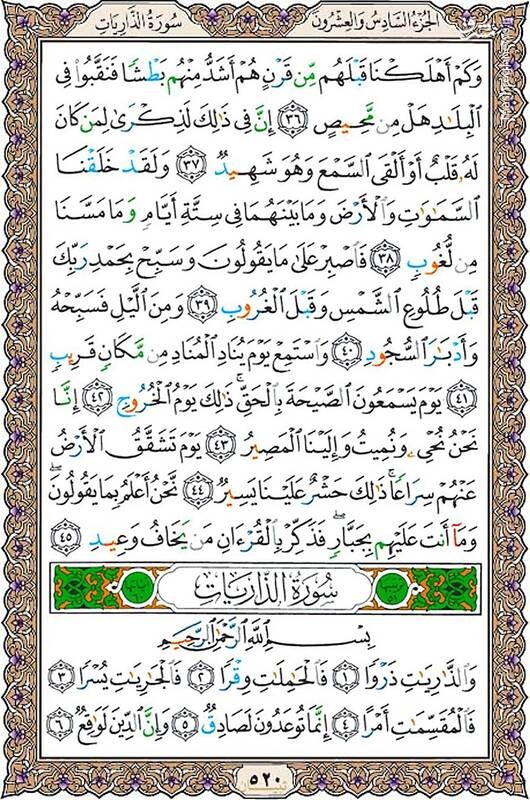 الجزء السادس والعشرون
سورة الذاريات
وَكَمْ أَهْلَكْنَا قَبْلَهُم مِّن قَرْنٍ هُمْ أَشَدُّ مِنْهُم بَطْشًا فَنَقَّبُوا۟ فِى
ٱلْبِلَـٰدِ هَلْ مِن مَّحِيصٍ ٣٦ إِنَّ فِى ذَٰلِكَ لَذِكْرَىٰ لِمَن كَانَ
لَهُۥ قَلْبٌ أَوْ أَلْقَى ٱلسَّمْعَ وَهُوَ شَهِيدٌ ٣٧ وَلَقَدْ خَلَقْنَا
ٱلسَّمَـٰوَٰتِ وَٱلْأَرْضَ وَمَا بَيْنَهُمَا فِى سِتَّةِ أَيَّامٍ وَمَا مَسَّنَا
مِن لُّغُوبٍ ٣٨ فَٱصْبِرْ عَلَىٰ مَا يَقُولُونَ وَسَبِّحْ بِحَمْدِ رَبِّكَ
قَبْلَ طُلُوعِ ٱلشَّمْسِ وَقَبْلَ ٱلْغُرُوبِ ٣٩ وَمِنَ ٱلَّيْلِ فَسَبِّحْهُ
وَأَدْبَـٰرَ ٱلسُّجُودِ ٤٠ وَٱسْتَمِعْ يَوْمَ يُنَادِ ٱلْمُنَادِ مِن مَّكَانٍ قَرِيبٍ
٤١ يَوْمَ يَسْمَعُونَ ٱلصَّيْحَةَ بِٱلْحَقِّ ۚ ذَٰلِكَ يَوْمُ ٱلْخُرُوجِ ٤٢ إِنَّا
نَحْنُ نُحْىِۦ وَنُمِيتُ وَإِلَيْنَا ٱلْمَصِيرُ ٤٣ يَوْمَ تَشَقَّقُ ٱلْأَرْضُ
عَنْهُمْ سِرَاعًا ۚ ذَٰلِكَ حَشْرٌ عَلَيْنَا يَسِيرٌ ٤٤ نَّحْنُ أَعْلَمُ بِمَا يَقُولُونَ ۖ
وَمَآ أَنتَ عَلَيْهِم بِجَبَّارٍ ۖ فَذَكِّرْ بِٱلْقُرْءَانِ مَن يَخَافُ وَعِيدِ ٤٥
سُورَةُ الذَّارِيَاتِ
بِسْمِ ٱللَّهِ ٱلرَّحْمَـٰنِ ٱلرَّحِيمِ
وَٱلذَّٰرِيَـٰتِ ذَرْوًا ١ فَٱلْحَـٰمِلَـٰتِ وِقْرًا ٢ فَٱلْجَـٰرِيَـٰتِ يُسْرًا ٣
فَٱلْمُقَسِّمَـٰتِ أَمْرًا ٤ إِنَّمَا تُوعَدُونَ لَصَادِقٌ ٥ وَإِنَّ ٱلدِّينَ لَوَٰقِعٌ ٦
٥٢٠